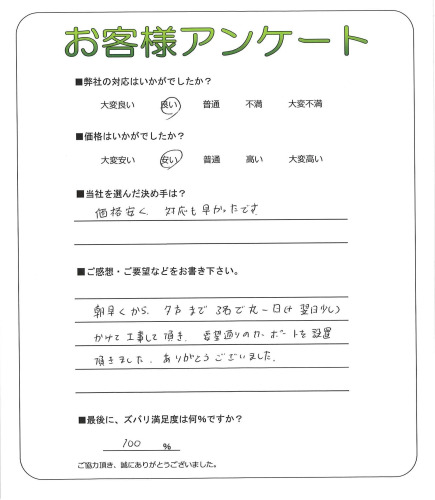 お客様アンケート
■弊社の対応はいかがでしたか？
大変良い 良い 普通 不満 大変不満
■価格はいかがでしたか？
大変安い 安い 普通 高い 大変高い
■当社を選んだ決め手は？
価格安く、対応も早かったです
■ご感想・ご要望などをお書き下さい。
朝早くから、夕方まで 3名で丸一日(+翌日少し)
かけて工事して頂き、要望通りのカーポートを設置
頂きました。ありがとうございました。
■最後に、ズバリ満足度は何％ですか？
100 ％
ご協力頂き、誠にありがとうございました。